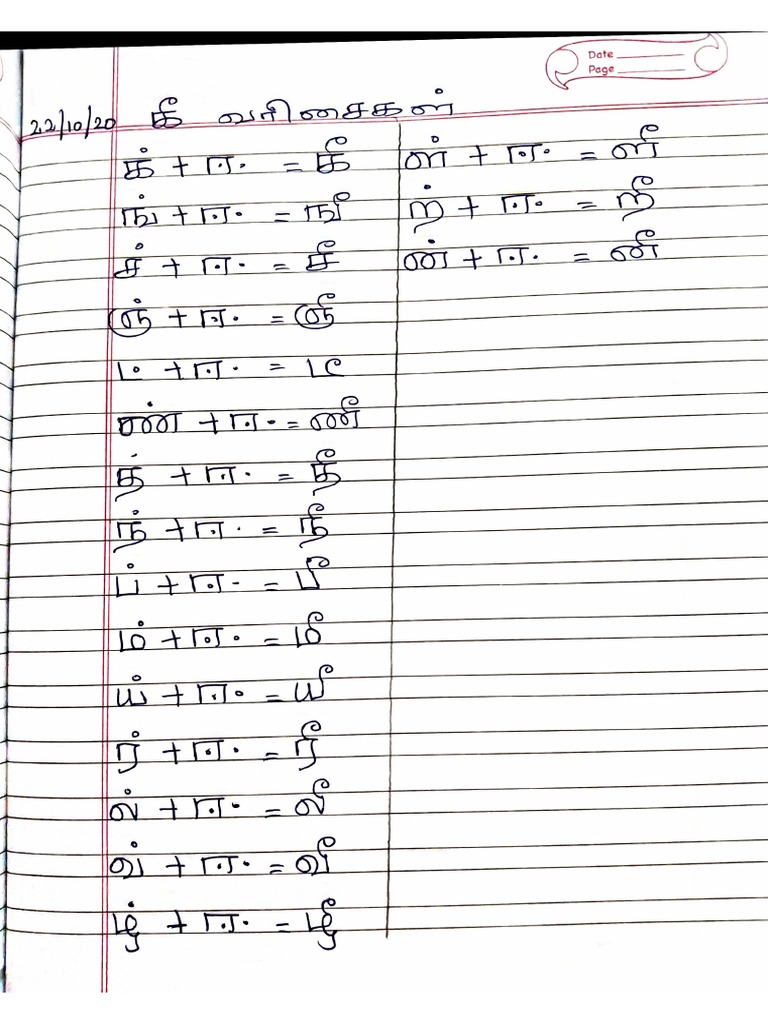 Date
Page
22/10/20 கீ வரிசைகள்
க் + ஈ = கீ
ங் + ஈ = ஙீ
ச் + ஈ = சீ
ஞ் + ஈ = ஞீ
ட் + ஈ = டீ
ண் + ஈ = ணீ
த் + ஈ = தீ
ந் + ஈ = நீ
ப் + ஈ = பீ
ம் + ஈ = மீ
ய் + ஈ = யீ
ர் + ஈ = ரீ
ல் + ஈ = லீ
வ் + ஈ = வீ
ழ் + ஈ = ழீ
ள் + ஈ = ளீ
ற் + ஈ = றீ
ன் + ஈ = னீ